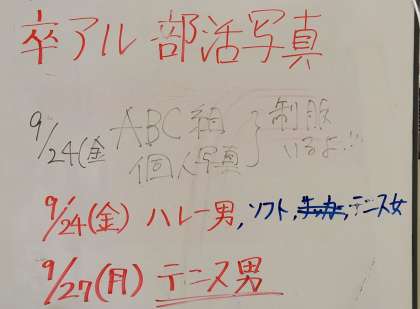 卒アル 部活写真
9/24(金 ABC組 個人写真 } 制服いるよ!!
9/24(金) バレー男, ソフト, サッカー, テニス女
9/27(月) テニス男